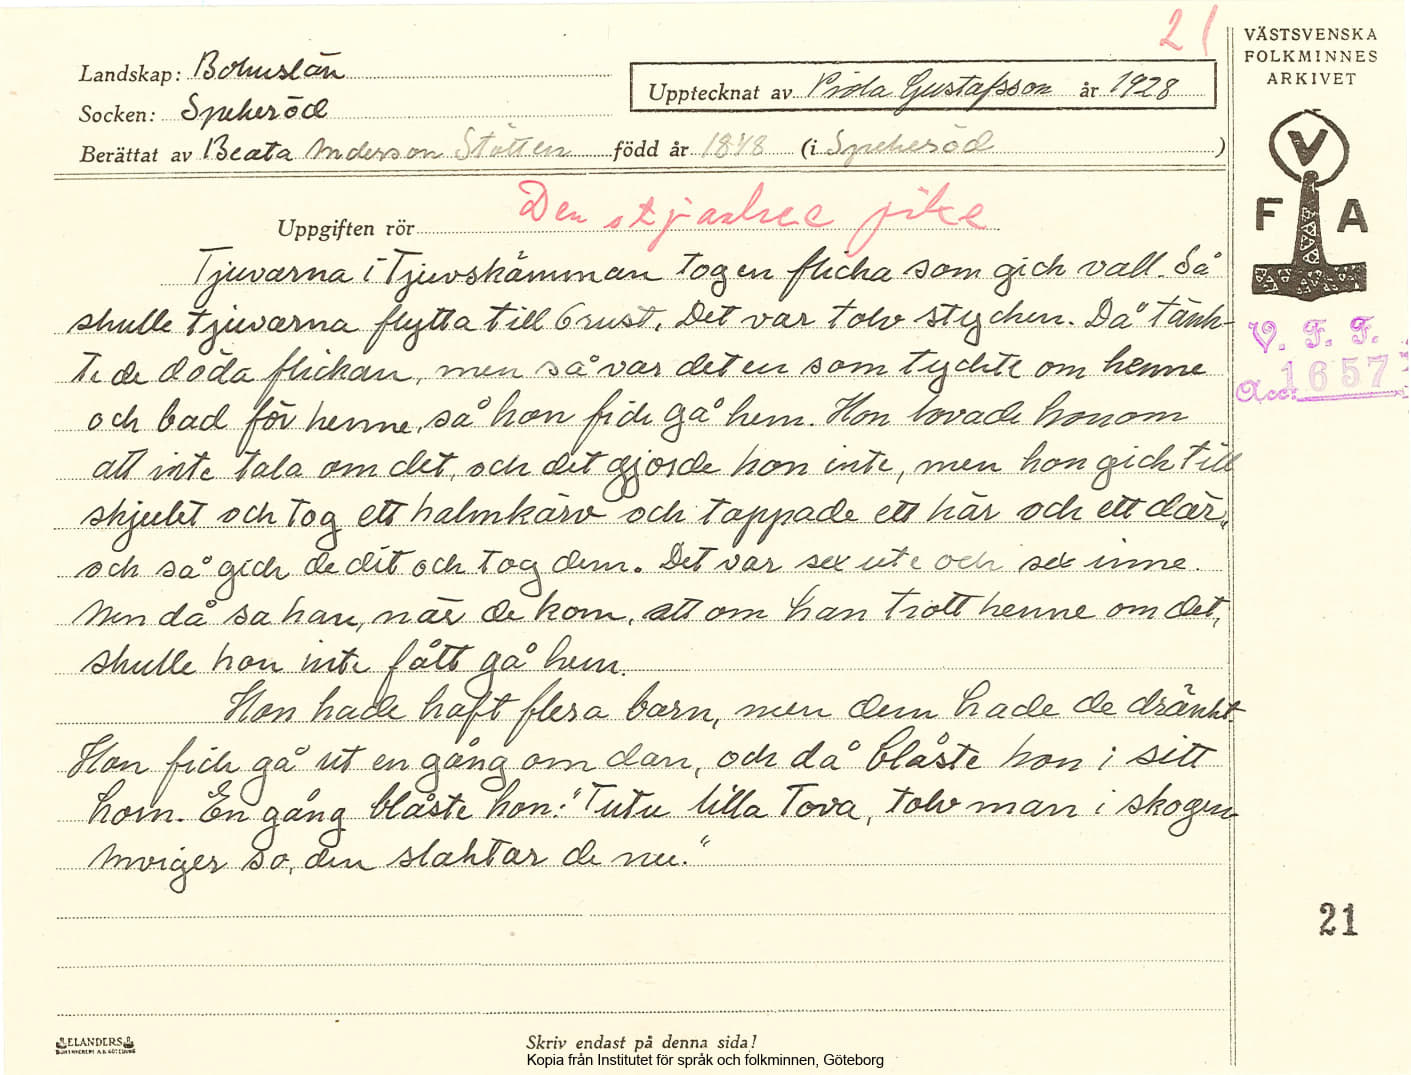 21
VÄSTSVENSKA
FOLKMINNES
ARKIVET
Landskap: Bohuslän
Upptecknat av Gustafsson år 1928
Socken: Spekeröd
Berättat av Beata Anderson Stötten född år 1848 (i Spekeröd)
Uppgiften rör Den
V
F A
Tjuvarna i Tjuvskämman tog en flicka som gick vall. Så
skulle tjuvarna flytta till Orust. Det var tolv stycken. Då tänk-
te de döda flickan, men så var det en som tyckte om henne
och bad för henne, så hon fick gå hem. Hon lovade honom
att inte tala om det, och det gjorde hon inte, men hon gick till
skjulet och tog ett halmkärv och tappade ett här och ett där,
och så gick de dit och tog dem. Det var sex ute och sex inne.
Men då sa han, när de kom, att om han trott henne om det,
skulle hon inte fått gå hem.
Hon hade haft flera barn, men dem hade de dränkt.
Hon fick gå ut en gång om dan, och då blåste hon i sitt
horn. En gång blåste hon: "Tutu lilla Tova, tolv man i skogen
so, den slaktar de nu."
V. F. F.
Acc. 1657
21
ELANDERS
Skriv endast på denna sida!
Kopia från Institutet för språk och folkminnen, Göteborg